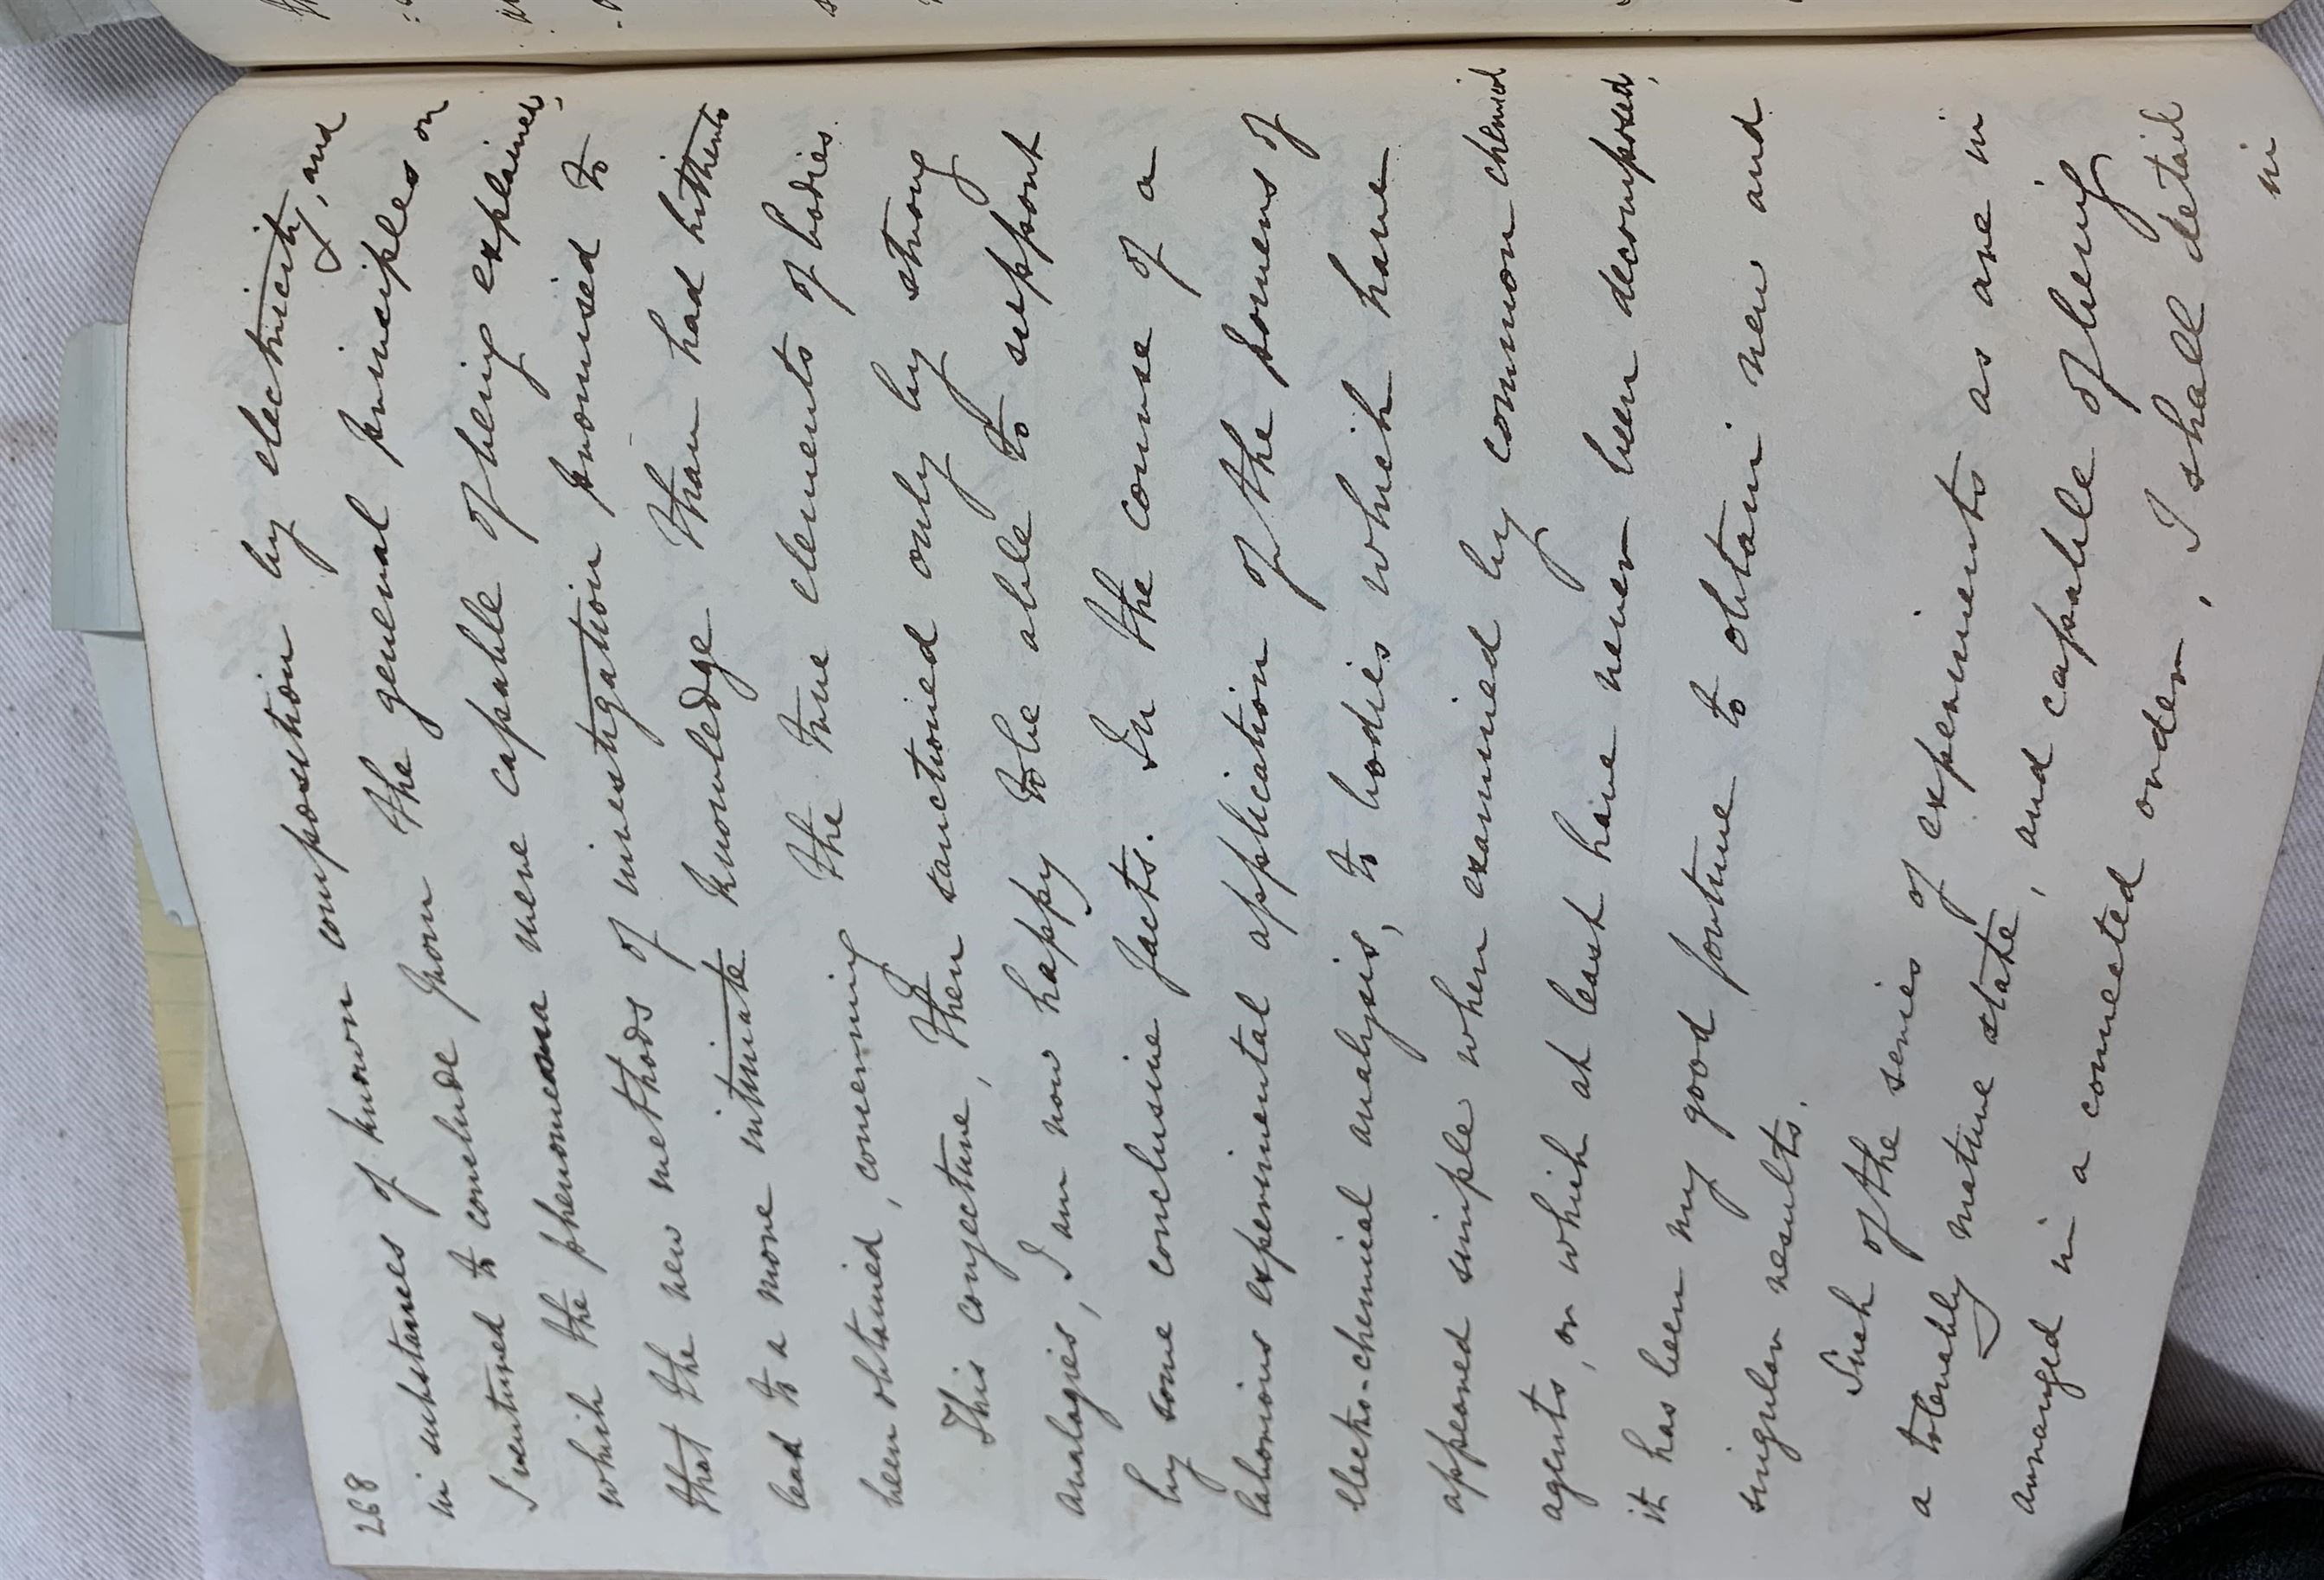 268
in substances of known composition by electricity, and
I ventured to conclude from the general principles on
which the phenomena were capable of being explained,
that the new methods of investigation promised to
lead to a more intimate knowledge than had hitherto
been obtained, concerning the true elements of bodies.
This conjecture, then sanctioned only by strong
analogies, I am now happy to be able to support
by some conclusive facts. In the course of a
laborious experimental application of the powers of
electro-chemical analysis, to bodies which have
appeared simple when examined by common chemical
agents, or which at least have never been decomposed,
it has been my good fortune to obtain new and
singular results.
Such of the series of experiments as are in
a tolerably mature state, and capable of being
arranged in a connected order, I shall detail
in